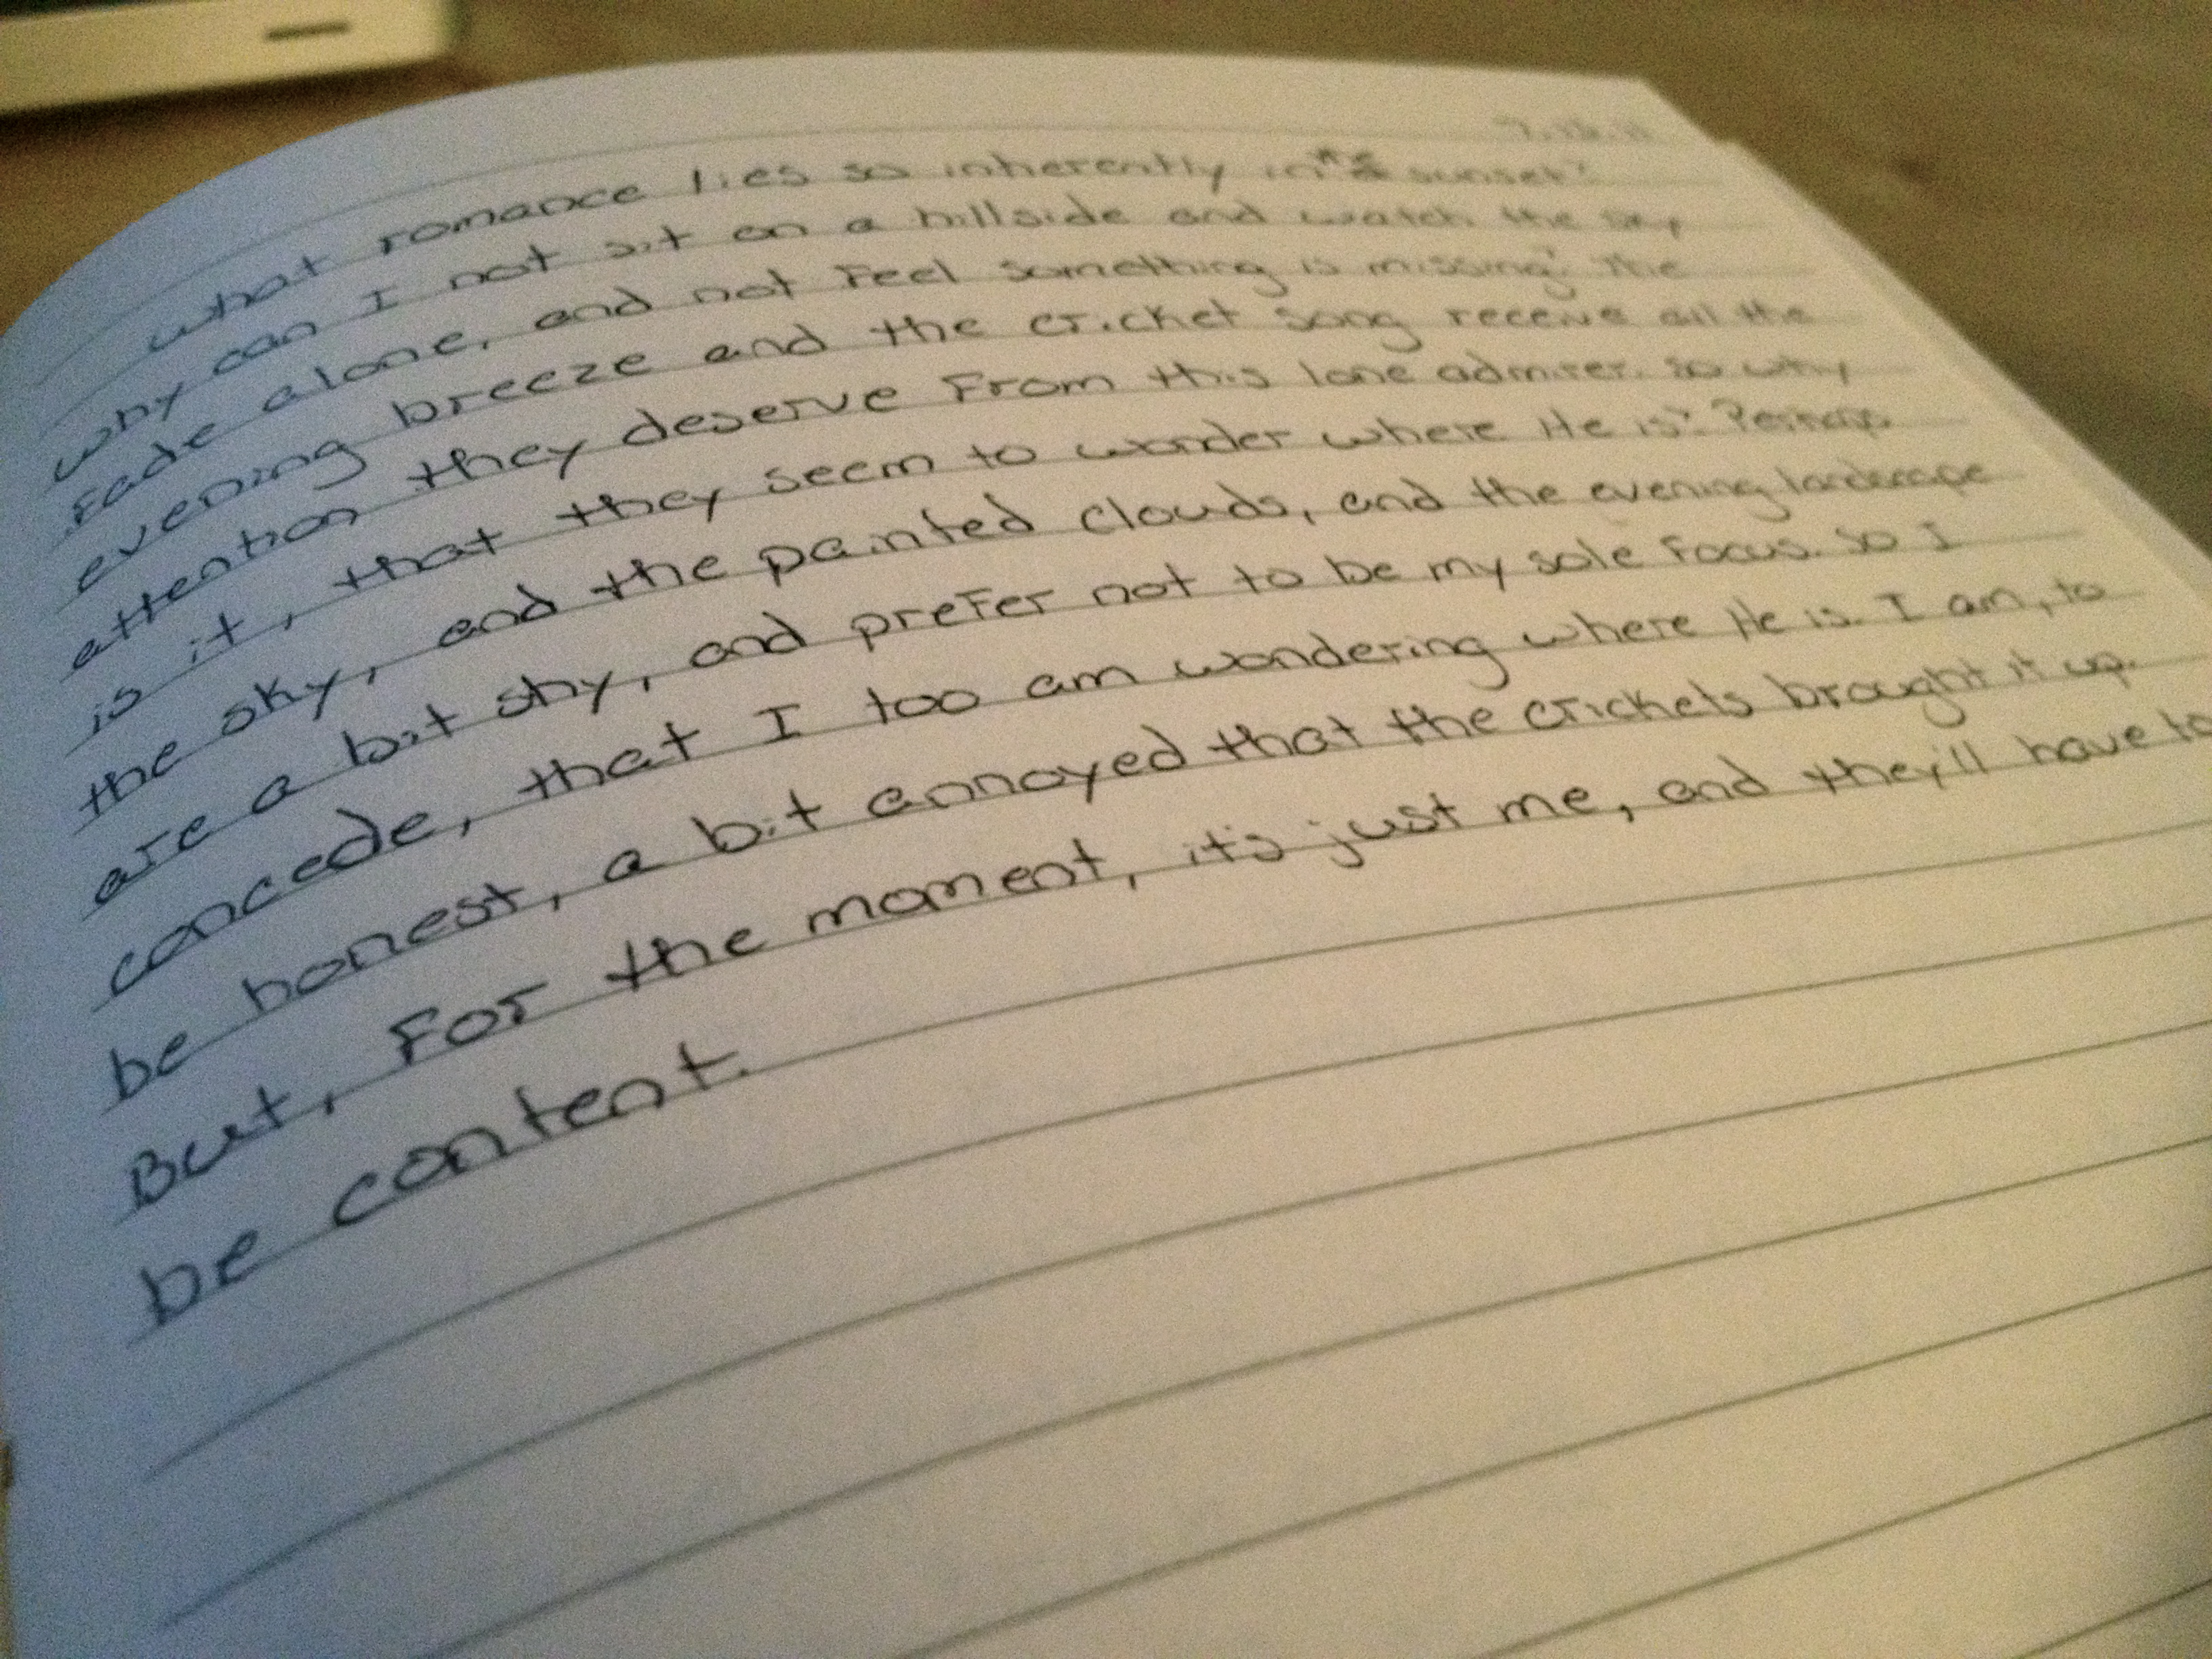 What romance lies so inherently in the sunset?
Why can I not sit on a hillside and watch the sky
fade alone, and not feel something is missing? The
evening breeze and the cricket song receive all the
attention they deserve from this lone admirer. So why
is it, that they seem to wonder where He is? Perhaps
the sky, and the painted clouds, and the evening landscape
are a bit shy, and prefer not to be my sole focus. So I
concede, that I too am wondering where He is. I am, to
be honest, a bit annoyed that the crickets brought it up.
But, for the moment, it's just me, and they'll have to
be content.